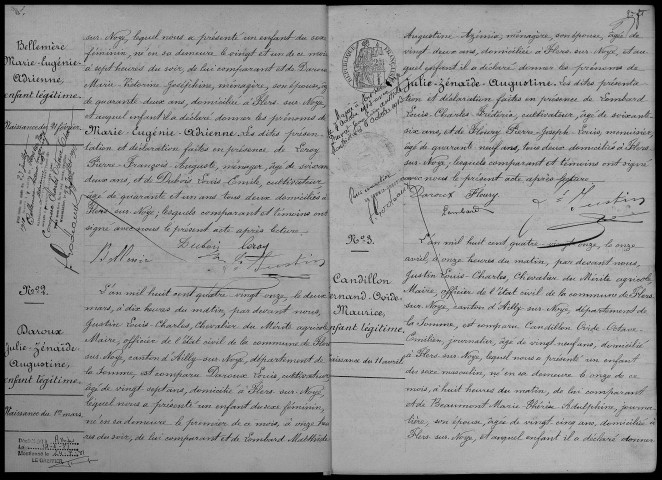 Bellemère
Marie-Eugénie-
Adrienne,
enfant légitime.
Naissance du 21 février.
sur Noye, lequel nous a présenté un enfant du sexe
féminin, né en sa demeure le vingt et un de ce mois
à sept heures du soir, de lui comparant et de Darou
Marie Victorine Joséphine, ménagère, son épouse, âgée
de quarante deux ans, domiciliée à Flers sur Noye,
et auquel enfant il a déclaré donner les prénoms de
Marie-Eugénie-Adrienne. Les dites présen-
tation et déclaration faites en présence de Leroy
Pierre-François Auguste, ménager, âgé de soixante
deux ans, et de Dubois Louis Emile, cultivateur
âgé de quarante et un ans tous deux domiciliés à
Flers sur Noye, lesquels comparant et témoins ont
signé avec nous le présent acte après lecture.
Bellemère Dubois Leroy
L. Ch. Justin
N°2.
Daroux
Julie-Zénaïde-
Augustine,
enfant légitime.
Naissance du 1er mars.
L'an mil huit cent quatre vingt onze, le deux
mars, à dix heures du matin, par devant nous,
Justin Louis-Charles, Chevalier du Mérite agricole
Maire, officier de l'État civil de la commune de Flers
sur Noye, canton d'Ailly-sur Noye, département de
la Somme, est comparu Daroux Louis, cultivateur
âgé de vingt sept ans, domicilié à Flers sur Noye,
lequel nous a présenté un enfant du sexe féminin,
né en sa demeure le premier de ce mois, à onze heu-
res du soir, de lui comparant et de Lombard Mathilde
Augustine Azémia, ménagère, son épouse, âgée de
vingt deux ans, domiciliée à Flers sur Noye, et au-
quel enfant il a déclaré donner les prénoms de
Julie-Zénaïde-Augustine. Les dites présenta-
tion et déclaration faites en présence de Lombard
Louis-Charles-Frédéric, cultivateur, âgé de soixante-
six ans, et de Fleury Pierre-Joseph-Louis, menuisier,
âgé de quarante neuf ans, tous deux domiciliés à Flers
sur Noye, lesquels comparant et témoins ont signé
avec nous le présent acte après lecture.
Daroux Fleury
Lombard
L. Ch. Justin
N°3.
Candillon
Fernand-Ovide-
Maurice,
enfant légitime.
Naissance du 11 avril.
L'an mil huit cent quatre vingt onze, le onze
avril, à onze heures du matin, par devant nous,
Justin Louis-Charles, Chevalier du Mérite agricole,
Maire, officier de l'État civil de la commune de Flers
sur Noye, canton d'Ailly-sur Noye, département de
la Somme, est comparu Candillon Ovide Octave
Emilien, journalier, âgé de vingt neuf ans, domicilié
à Flers sur Noye, lequel nous a présenté un enfant
du sexe masculin, né en sa demeure le onze de ce
mois, à huit heures du matin, de lui comparant
et de Beaumont Marie Thérèse Adulphine, journa-
lière, son épouse, âgée de vingt cinq ans, domiciliée à
Flers sur Noye, et auquel enfant il a déclaré donner